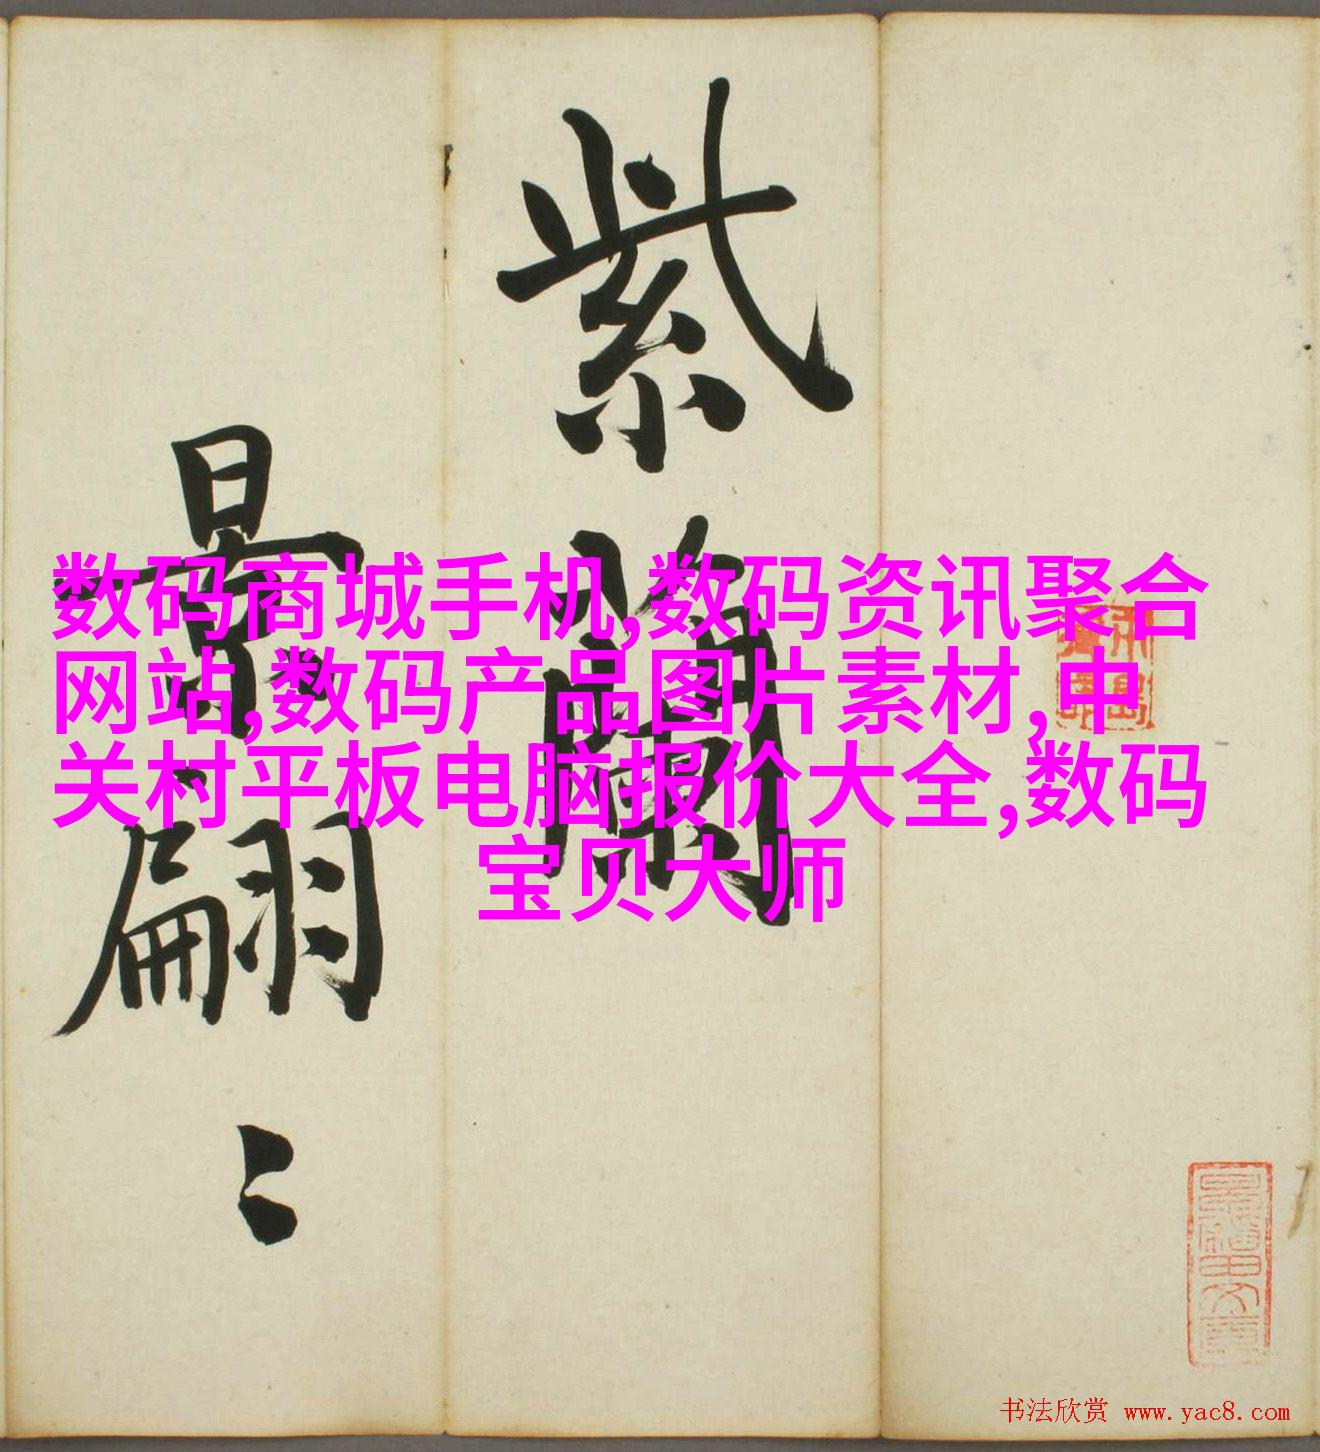 紫蘭
景翩〻
数码商城手机,数码资讯聚合
网站,数码产品图片素材,中
关村平板电脑报价大全,数码
宝贝大师
书法欣赏 www.yac8.com